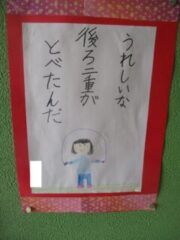 うれしいな
後ろ二重が
とべたんだ